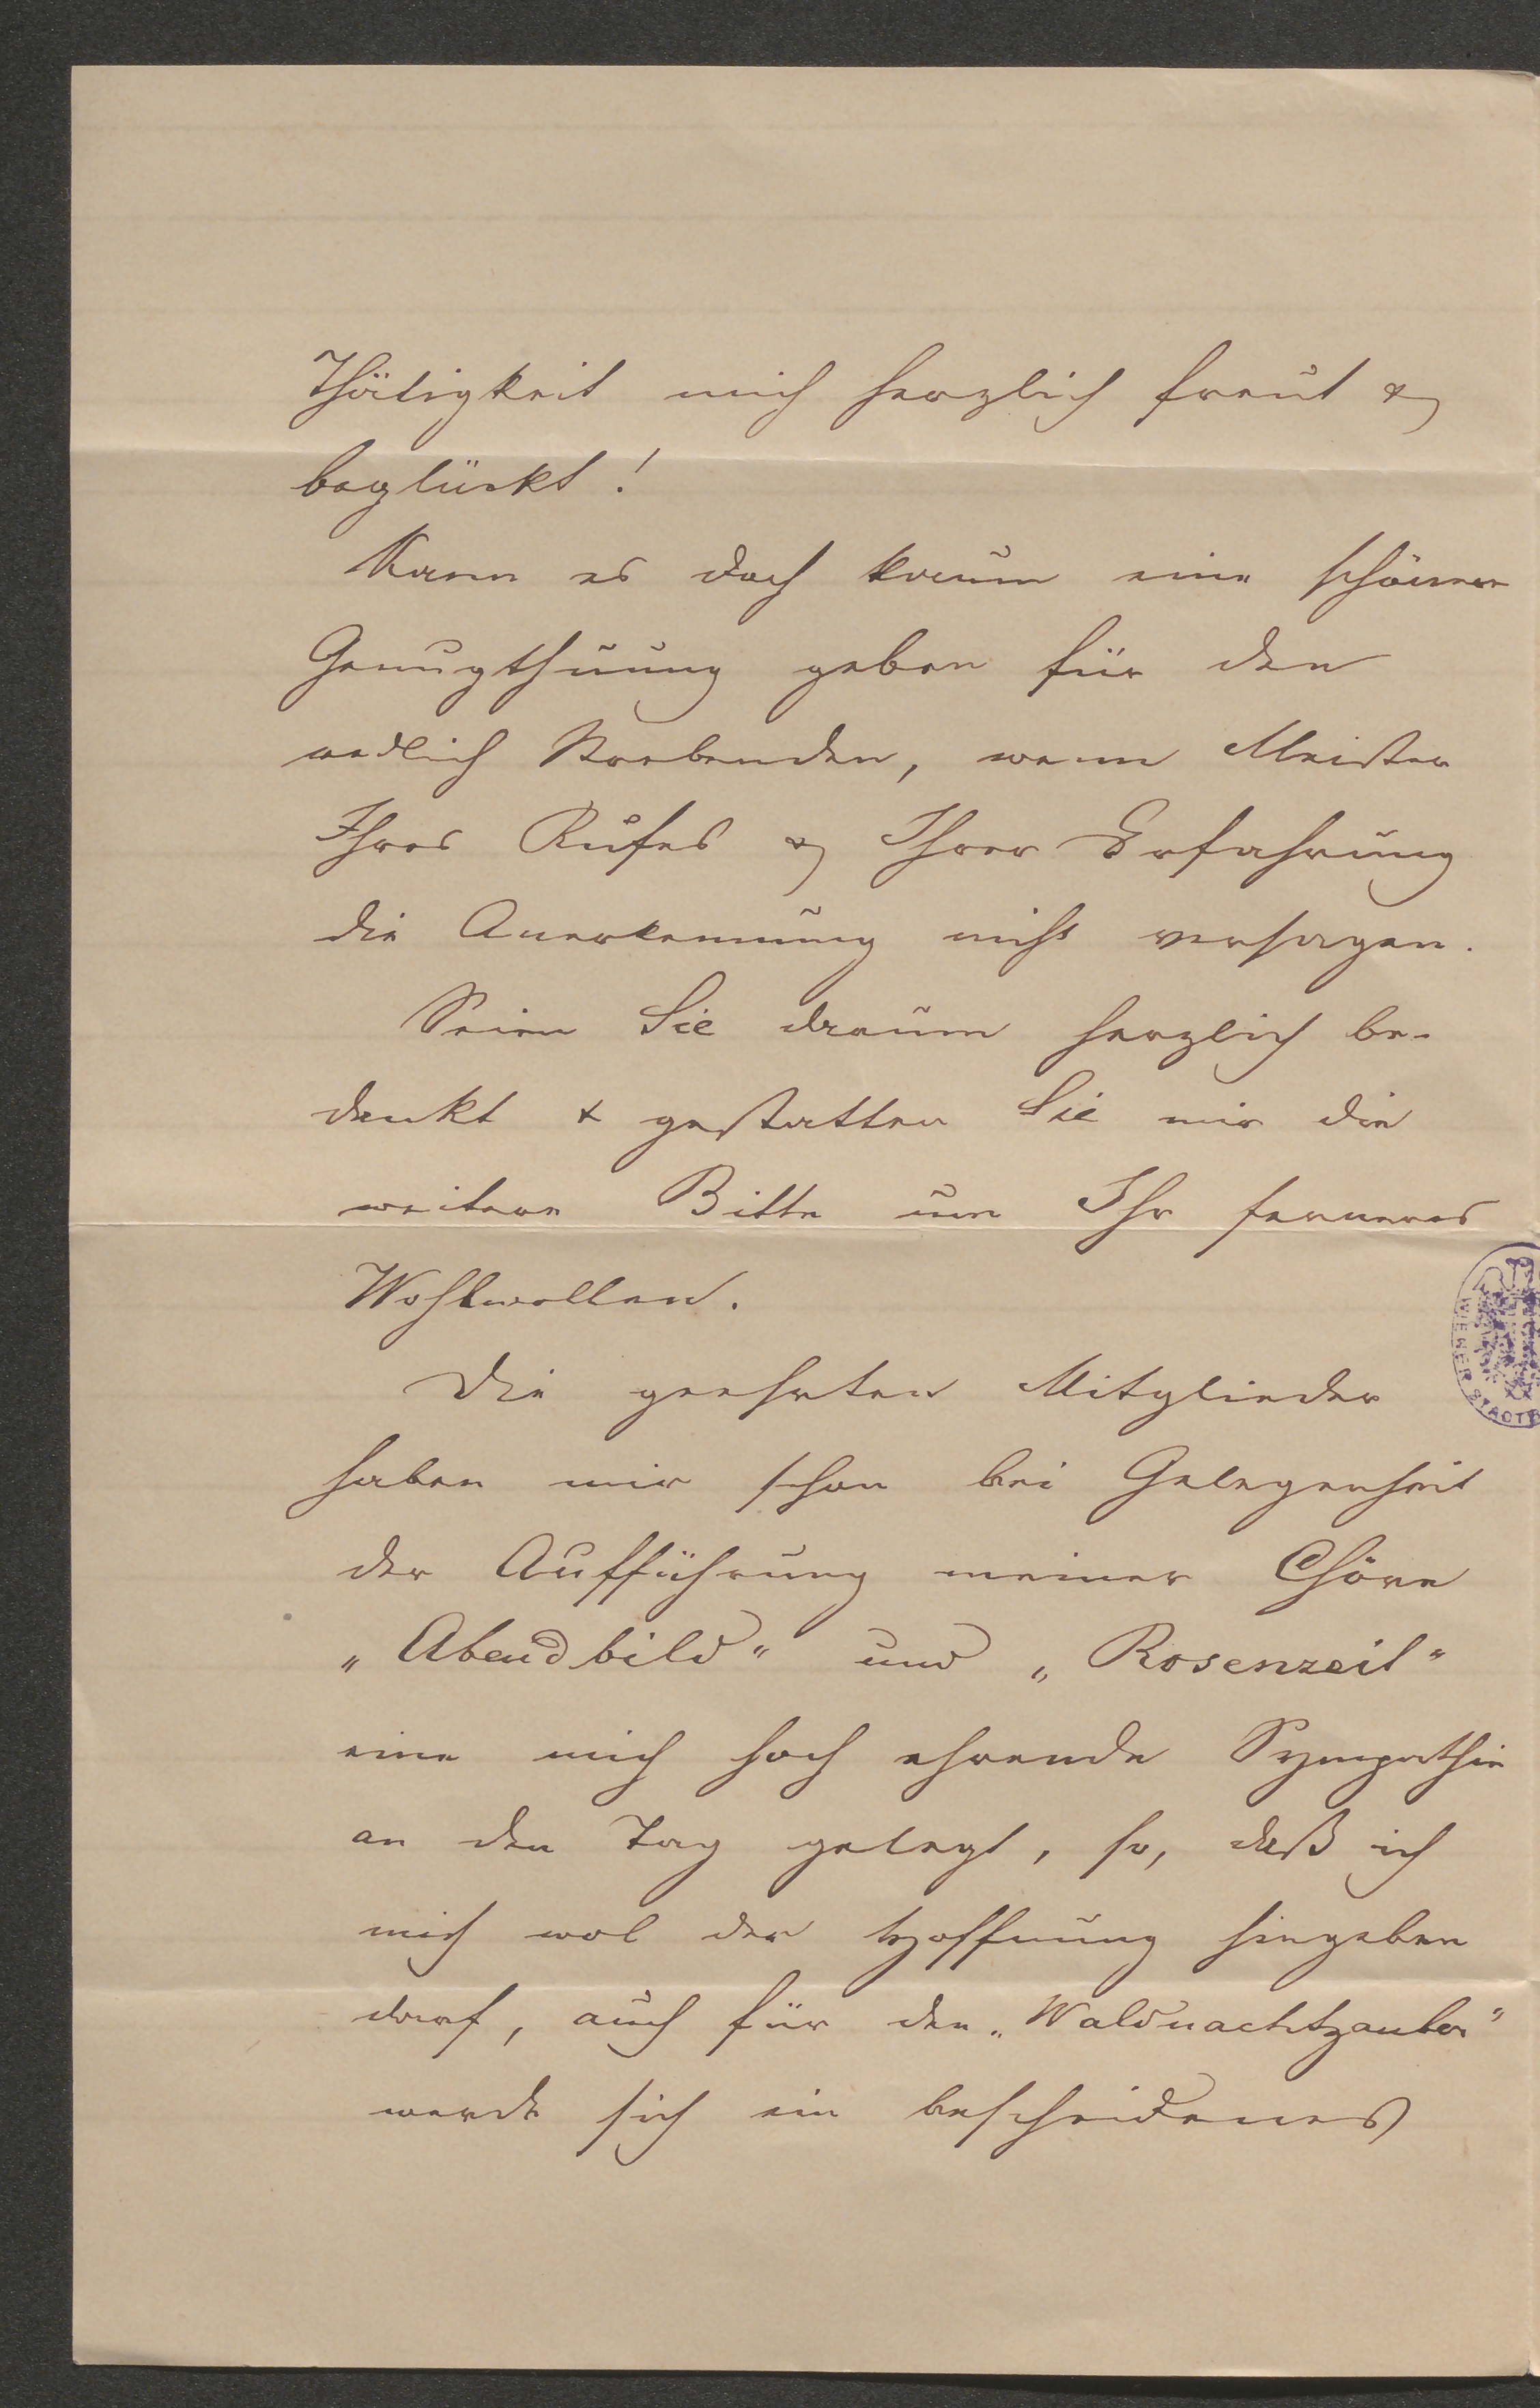 Thätigkeit mich herzlich freut &
beglückt!
Kann es doch kaum eine schönere
Genugthuung geben für den
redlich Strebenden, wenn Meister
Ihres Rufes & Ihrer Erfahrung
die Anerkennung nicht versagen.
Seien Sie drum herzlich be-
dankt & gestatten Sie mir die
weitere Bitte um Ihr ferneres
Wohlwollen.
Die geehrten Mitglieder
haben mir schon bei Gelegenheit
der Aufführung meiner Chöre
„Abendbild" und „Rosenzeit"
eine mich hoch ehrende Sympathie
an den Tag gelegt, so, daß ich
mich wol der Hoffnung hingeben
darf, auch für den „Waldnachtzauber"
werde sich ein bescheidenes
WIENER STADTB